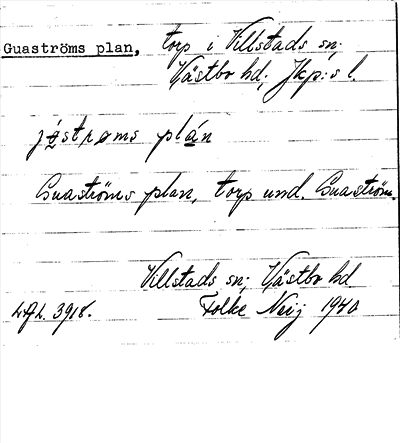 Guaströms plan, torp i Villstads sn;
Västbo hd; Jkp:s l.
plan
Guaströms plan, torp und. Guaström.
Villstads sn; Västbo hd
Folke 1940